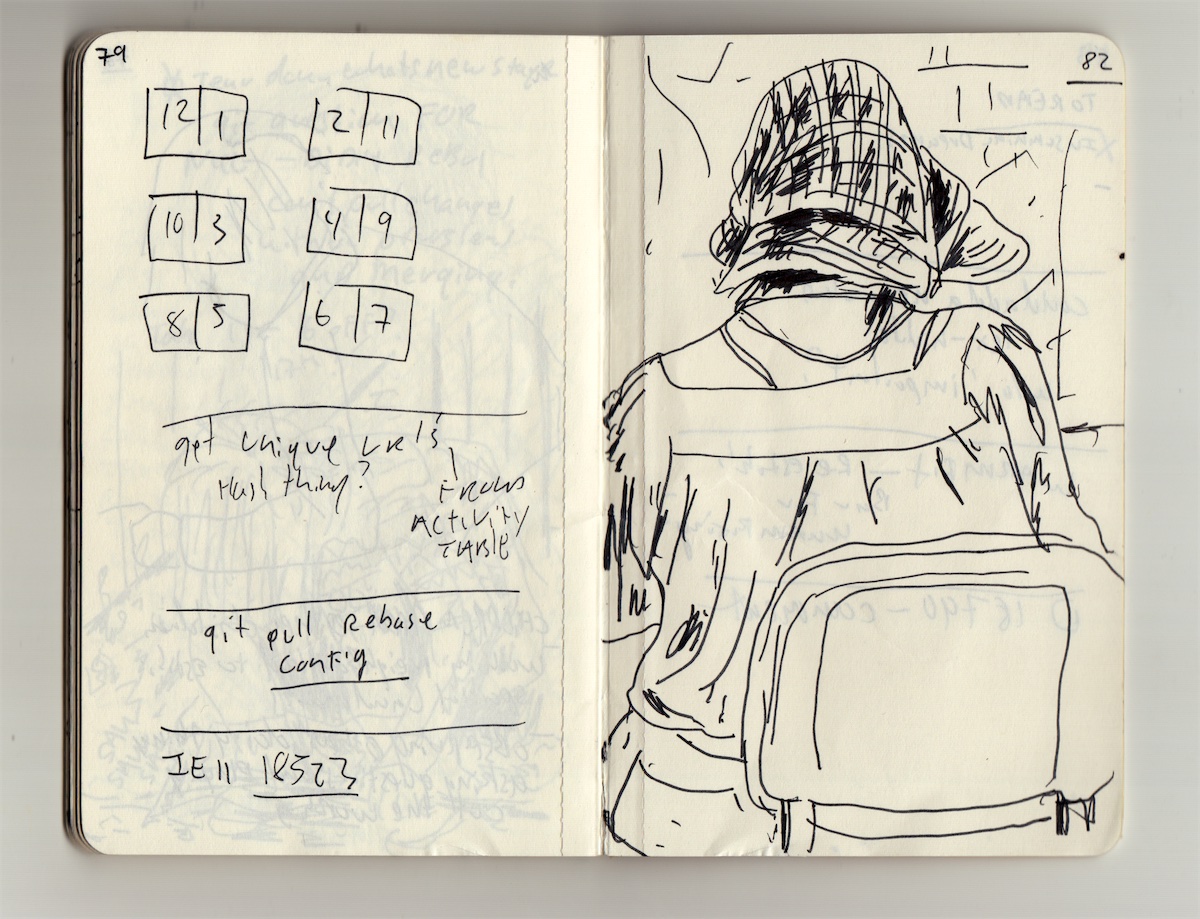 79
12 1
2 11
10 3
4 9
8 5
6 7
get unique url's
Hash thing?
FROM
ACTIVITY
TABLE
git pull Rebase
config
IE11 18523
82